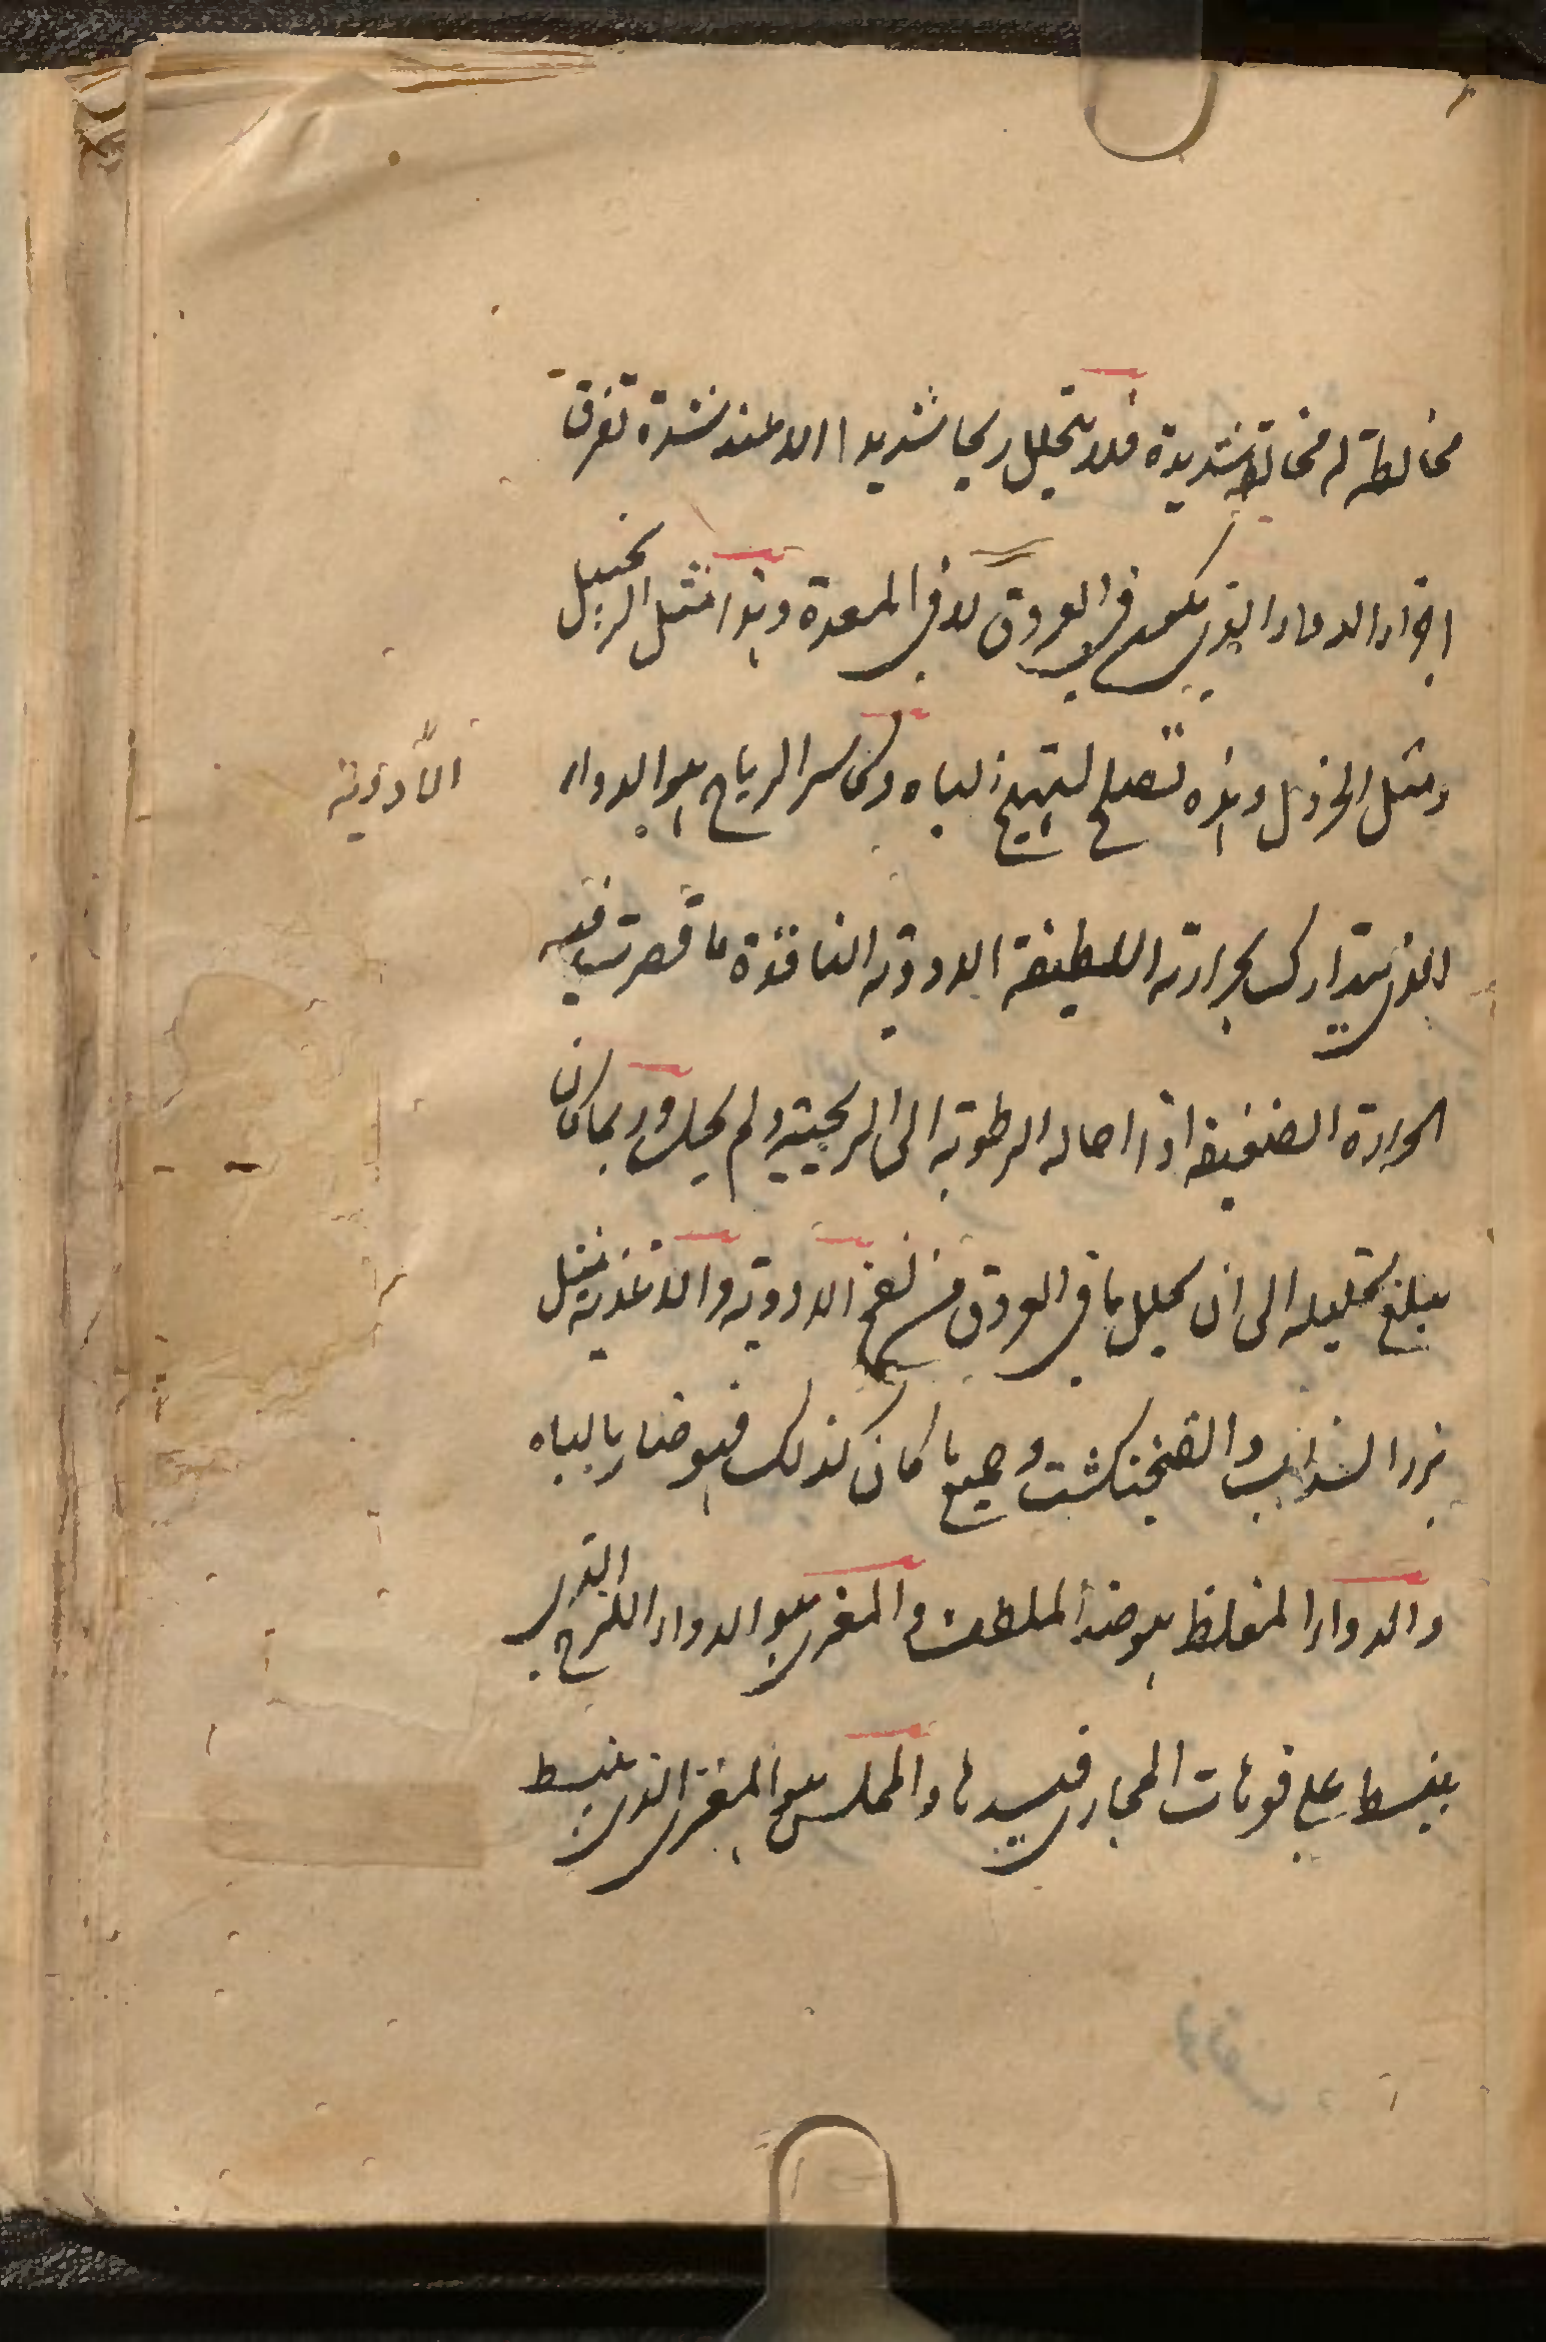 مخالطة له مخالطة شديدة فلا يتحلل ريحا شديدا الا عند شدة تفرق
اجزاء الدواء الذي يكون في العروق لا في المعدة وهذا مثل الزنجبيل
ومثل الخردل وهذه تصلح لتهييج الباه وكاسر الرياح هو الدواء
الذي يتدارك بحرارته اللطيفة الادوية النافذة ما قصرت فيه
الحرارة الضعيفة اذا احاله الرطوبة الى الريحية ولم يحلل وربما كان
يبلغ تحليله الى ان يحلل ما في العروق من نفخ الادوية والاغذية مثل
بزر السذاب والفنجنكشت وجميع ما كان كذلك فهو ضار بالباه
والدواء المغلظ هو ضد الملطف والمغري هو الدواء اللزج الذي
ينبسط على فوهات المجاري فيسدها والمملس هو المغري الذي ينبسط
الأدوية